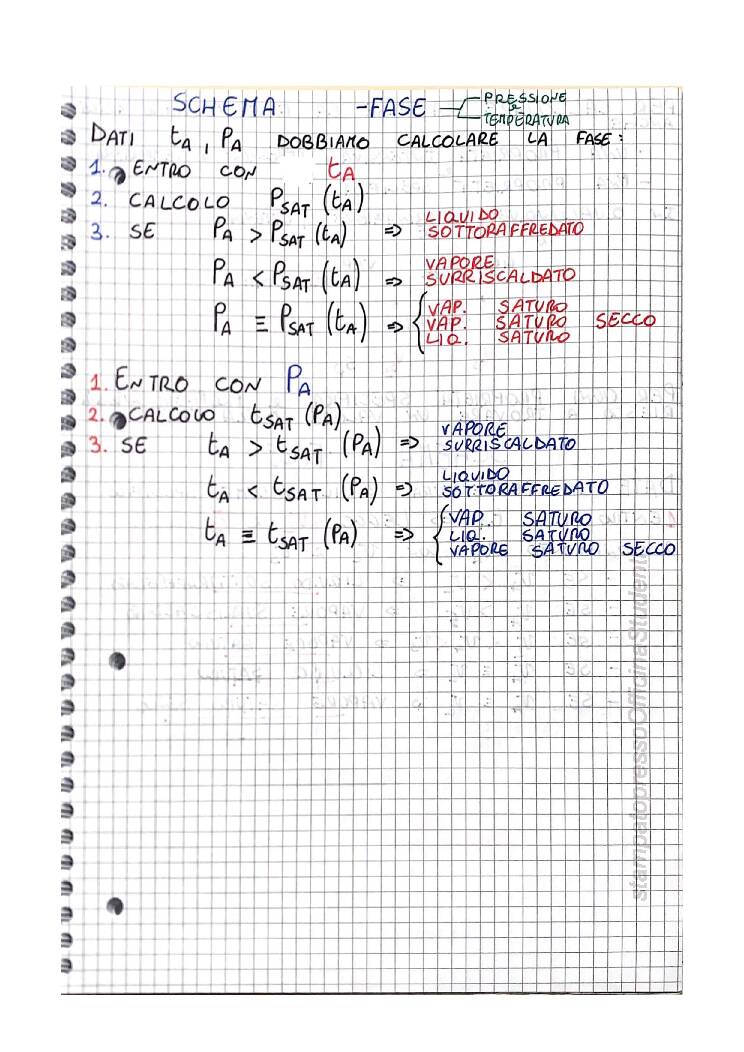 SCHEMA -FASE PRESSIONE e TEMPERATURA
DATI tA, PA DOBBIAMO CALCOLARE LA FASE:
1. ENTRO CON tA
2. CALCOLO PSAT (tA)
3. SE PA > PSAT (tA) => LIQUIDO SOTTORAFFREDATO
PA < PSAT (tA) => VAPORE SURRISCALDATO
PA ≡ PSAT (tA) => { VAP. SATURO
VAP. SATURO SECCO
LIQ. SATURO
1. ENTRO CON PA
2. CALCOLO tSAT (PA)
3. SE tA > tSAT (PA) => VAPORE SURRISCALDATO
tA < tSAT (PA) => LIQUIDO SOTTORAFFREDATO
tA ≡ tSAT (PA) => { VAP. SATURO
LIQ. SATURO
VAPORE SATURO SECCO
stampatopressoOfficinaStudenti